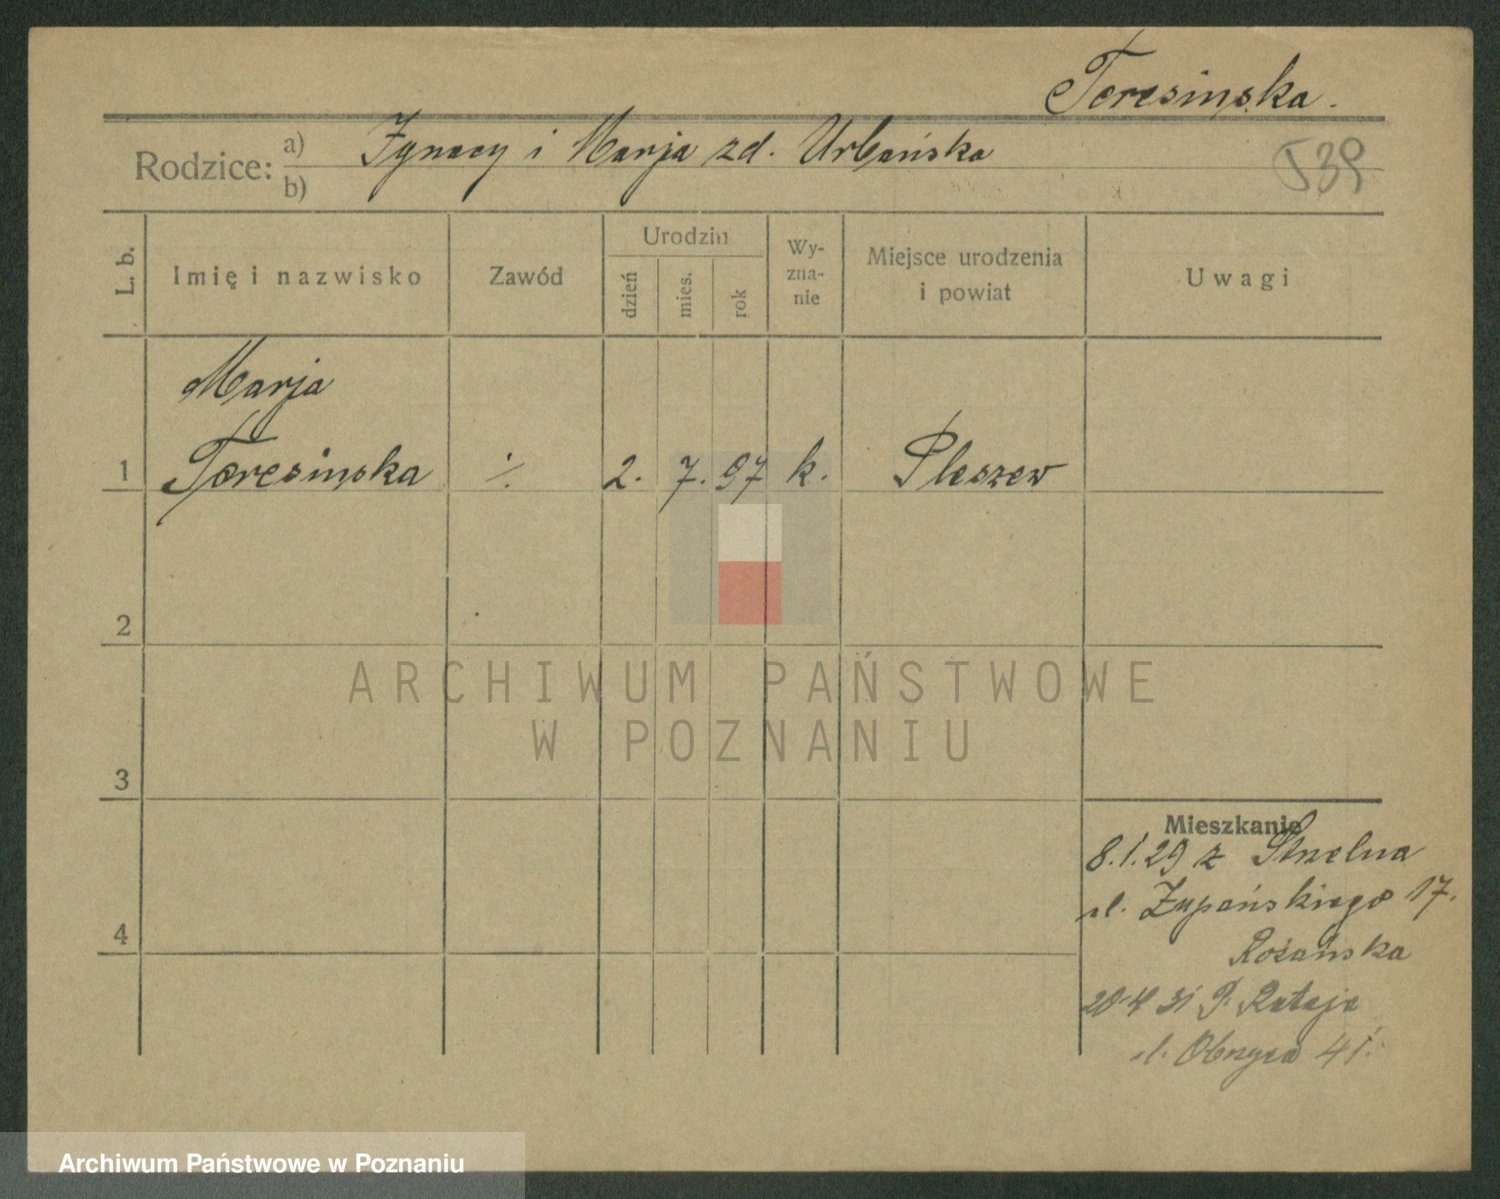 Teresinska.
Rodzice: a) Ignacy i Marja zd. Urbańska
b)
T39
L. b.
Imię i nazwisko
Zawód
Urodzin
dzień
mies.
rok
Wy-
zna-
nie
Miejsce urodzenia
i powiat
Uwagi
Marja
1 Teresinska ·/. 2. 7. 97 k. Pleszew
2
3
4
Mieszkanie
8.1.29 z Strzelna
ul. Żupańskiego 17.
Rożańska
20 4 31 P. Rataje
ul. Obrzyca 41.
ARCHIWUM PAŃSTWOWE
W POZNANIU
Archiwum Państwowe w Poznaniu